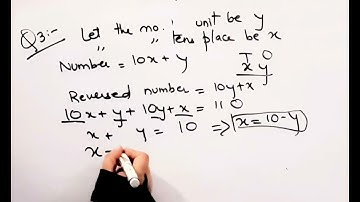 Q3:- Let the no. unit be y
" " tens place be x
Number = 10x + y
T O
x y
Reversed number = 10y+x
10x + y + 10y + x = 110
x + y = 10 => x = 10 - y
x -